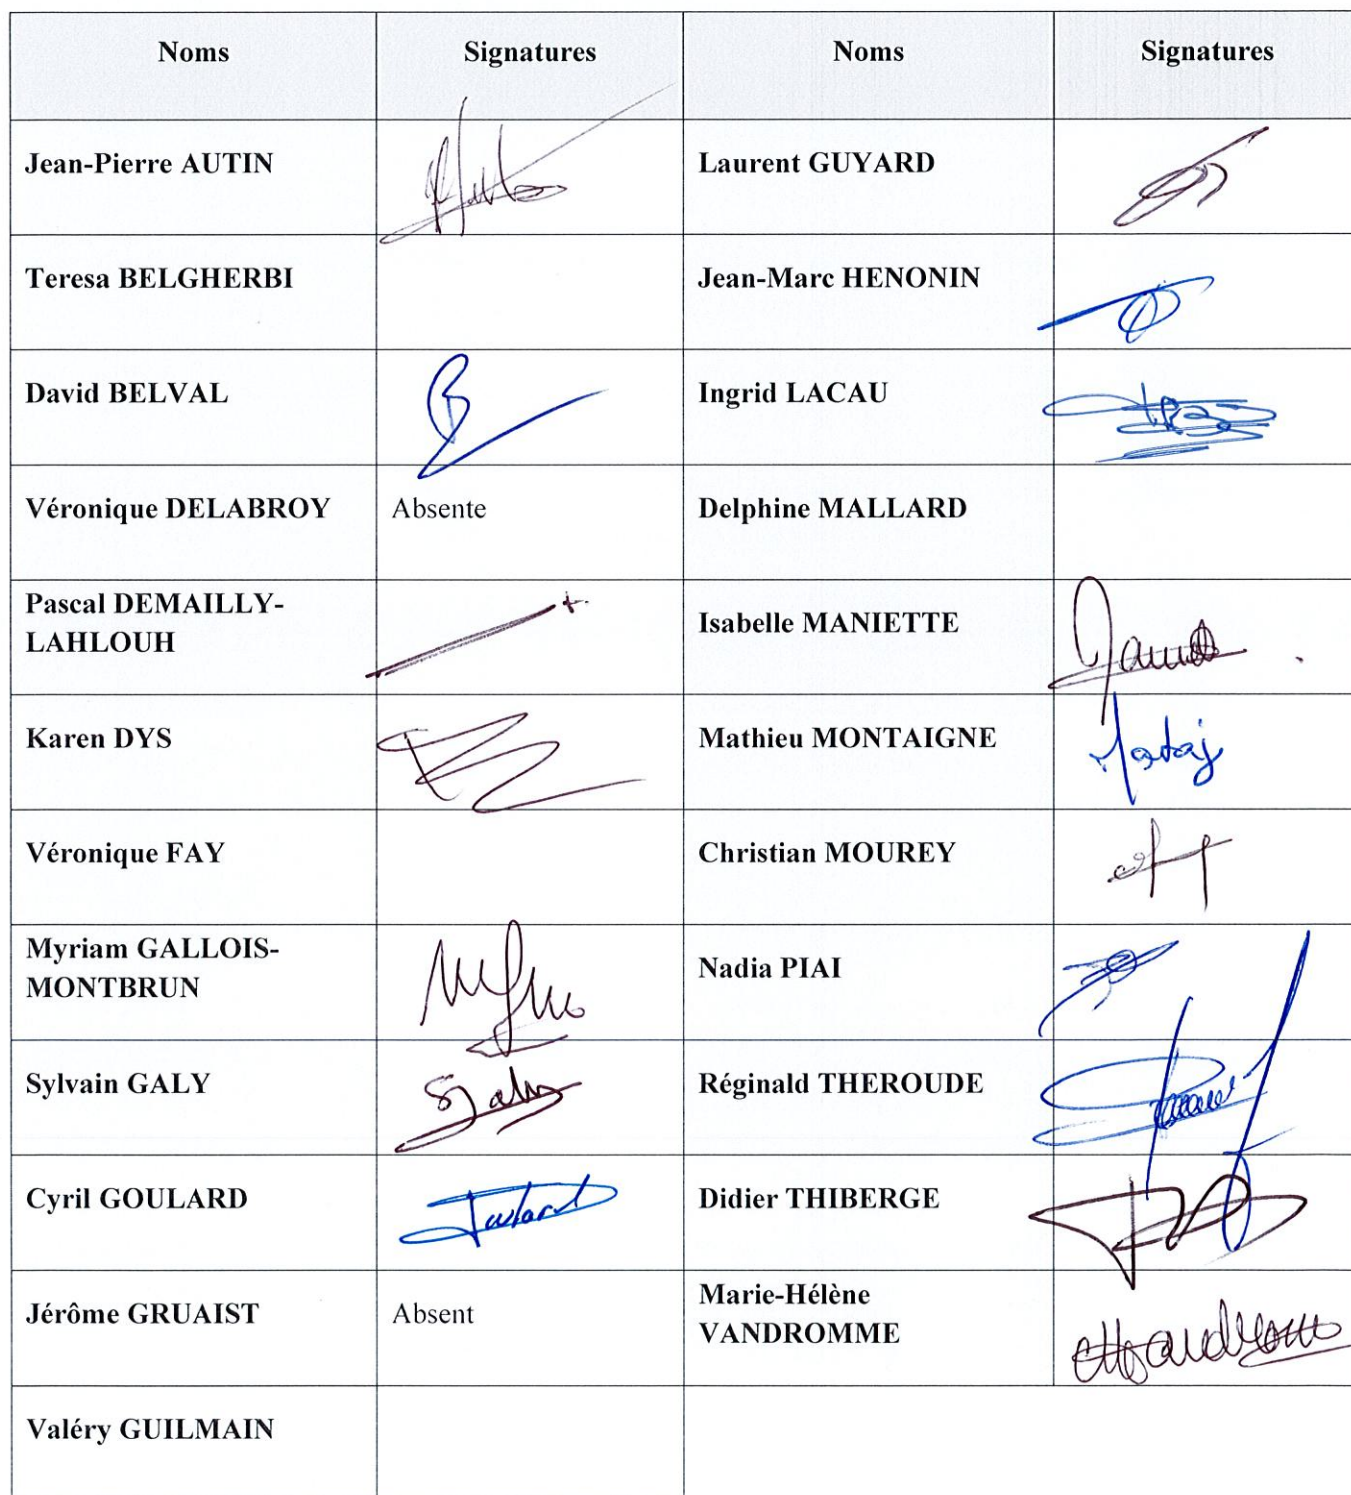 Noms Signatures Noms Signatures
Jean-Pierre AUTIN Laurent GUYARD
Teresa BELGHERBI Jean-Marc HENONIN
David BELVAL Ingrid LACAU
Véronique DELABROY Absente Delphine MALLARD
Pascal DEMAILLY-
LAHLOUH
Isabelle MANIETTE
Karen DYS Mathieu MONTAIGNE
Véronique FAY Christian MOUREY
Myriam GALLOIS-
MONTBRUN
Nadia PIAI
Sylvain GALY Réginald THEROUDE
Cyril GOULARD Didier THIBERGE
Jérôme GRUAIST Absent
Marie-Hélène
VANDROMME
Valéry GUILMAIN